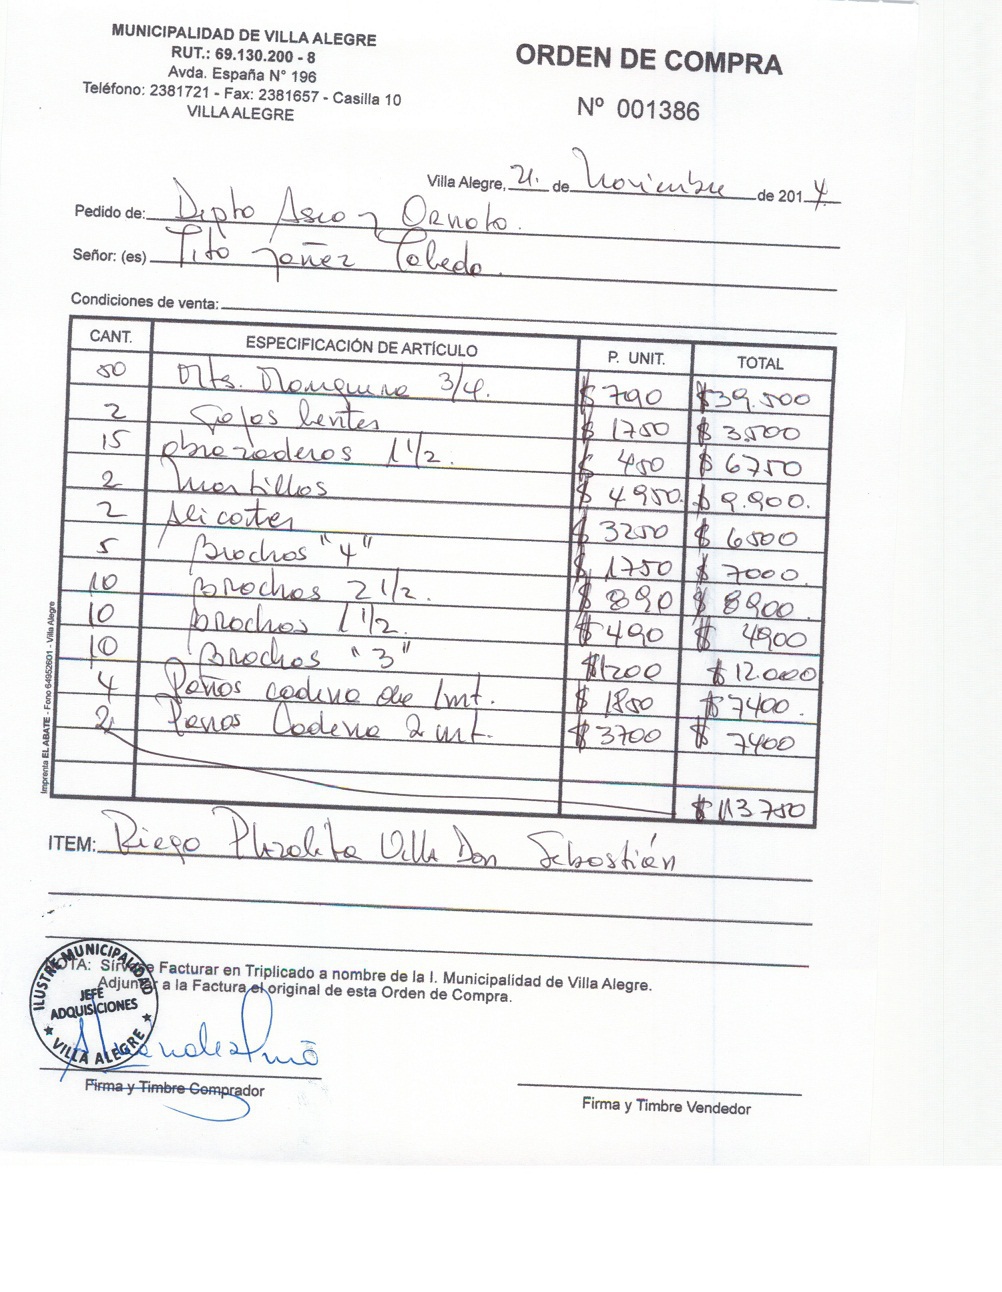 MUNICIPALIDAD DE VILLA ALEGRE
RUT.: 69.130.200 - 8
Avda. España N° 196
Teléfono: 2381721 - Fax: 2381657 - Casilla 10
VILLA ALEGRE
ORDEN DE COMPRA
Nº 001386
Villa Alegre, 21. de Noviembre de 2014.
Pedido de: Depto Aseo y Ornato.
Señor: (es) Tito Yañez Toledo.
Condiciones de venta:
CANT. ESPECIFICACIÓN DE ARTÍCULO P. UNIT. TOTAL
50 Mts. Manguera 3/4. $ 790 $39.500
2 Gafas lentes $ 1750 $ 3.500
15 abrazaderas 1 1/2. $ 450 $ 6750
2 Martillos $ 4950. $ 9.900.
2 Alicates $ 3250 $ 6500
5 Brochas "4" $ 1750 $ 7000
10 Brochas 2 1/2. $ 890 $ 8900
10 brochas 1 1/2. $ 490 $ 4900
10 Brochas "3" $1200 $ 12.000
4 cadena de 1mt. $ 1850 $ 7400.
2 Cadena 2 mt. $ 3700 $ 7400
$ 113750
ITEM: Riego Plazolita Villa Don Sebastián
NOTA: Sirvase Facturar en Triplicado a nombre de la I. Municipalidad de Villa Alegre.
Adjuntar a la Factura el original de esta Orden de Compra.
ILUSTRE MUNICIPALIDAD
JEFE
ADQUISICIONES
VILLA ALEGRE
Firma y Timbre Comprador
Firma y Timbre Vendedor
Imprenta EL ABATE - Fono 64952601 - Villa Alegre